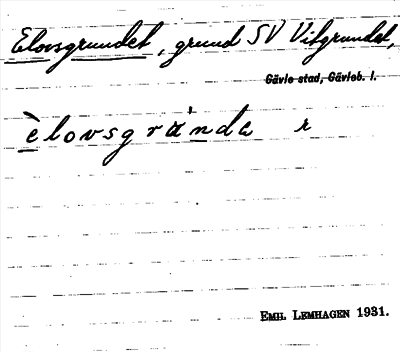 Elovsgrundet, grund SV Vitgrundet,
Gävle stad, Gävleb. l.
èlovsgrànda r
EMH. LEMHAGEN 1931.